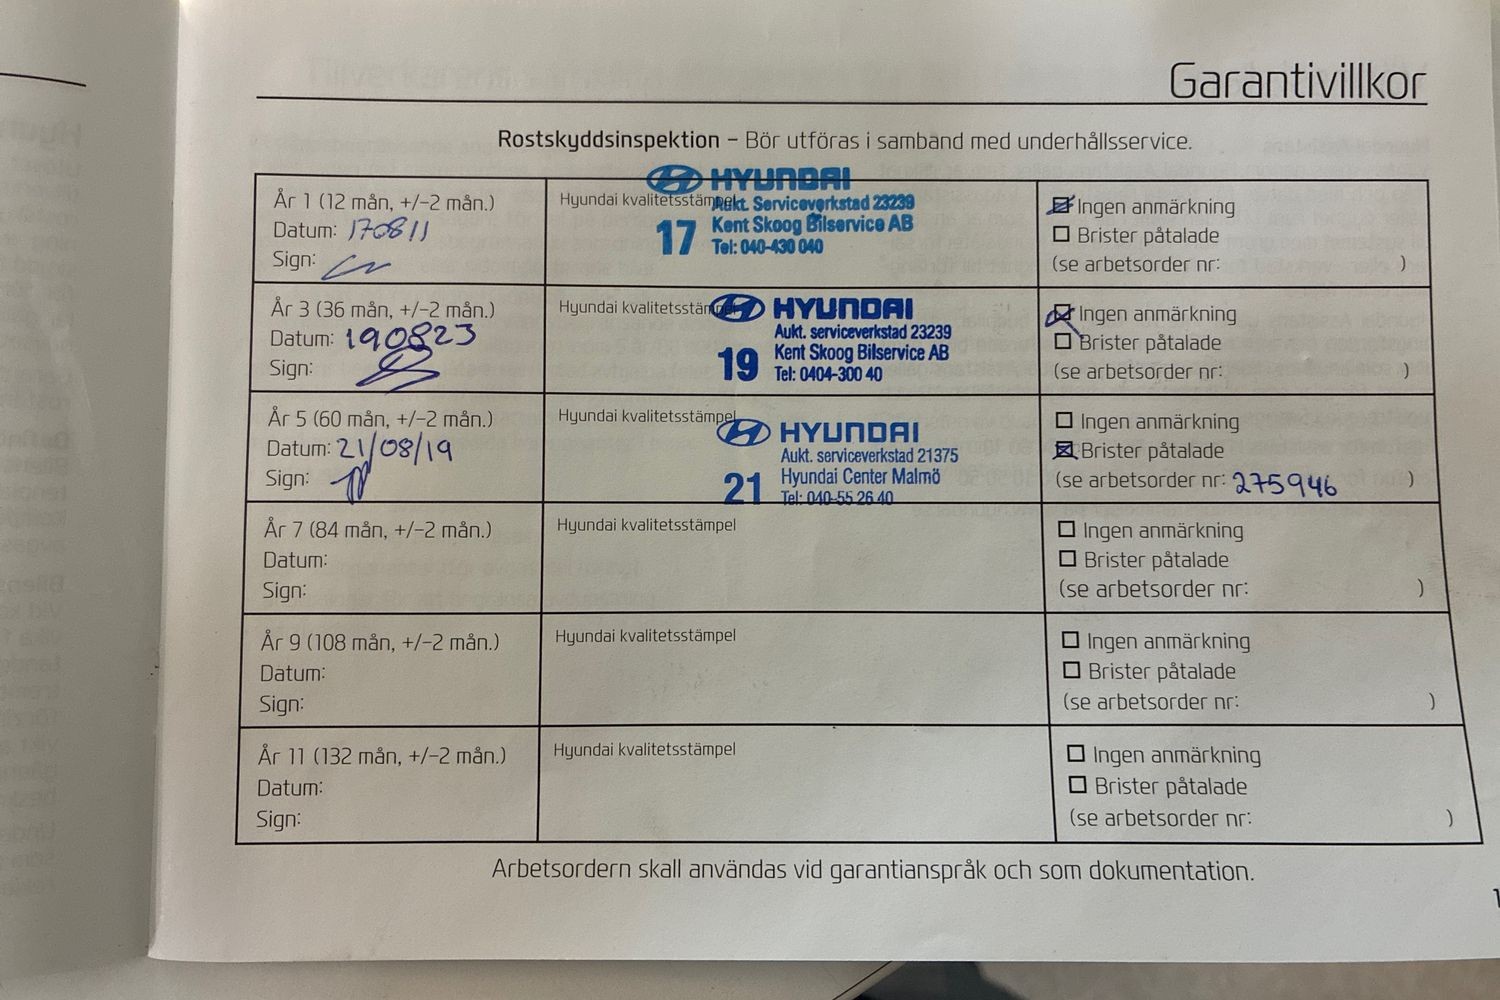 Garantivillkor
Rostskyddsinspektion – Bör utföras i samband med underhållsservice.
År 1 (12 mån, +/–2 mån.)
Datum: 170811
Sign:
Hyundai kvalitetsstämpel
HYUNDAI
Aukt. Serviceverkstad 23239
Kent Skoog Bilservice AB
17 Tel: 040-430 040
Ingen anmärkning
Brister påtalade
(se arbetsorder nr: )
År 3 (36 mån, +/–2 mån.)
Datum: 190823
Sign:
Hyundai kvalitetsstämpel
HYUNDAI
Aukt. serviceverkstad 23239
Kent Skoog Bilservice AB
19 Tel: 0404-300 40
Ingen anmärkning
Brister påtalade
(se arbetsorder nr: )
År 5 (60 mån, +/–2 mån.)
Datum: 21/08/19
Sign:
Hyundai kvalitetsstämpel
HYUNDAI
Aukt. serviceverkstad 21375
Hyundai Center Malmö
21 Tel: 040-55 26 40
Ingen anmärkning
Brister påtalade
(se arbetsorder nr: 275946 )
År 7 (84 mån, +/–2 mån.)
Datum:
Sign:
Hyundai kvalitetsstämpel
Ingen anmärkning
Brister påtalade
(se arbetsorder nr: )
År 9 (108 mån, +/–2 mån.)
Datum:
Sign:
Hyundai kvalitetsstämpel
Ingen anmärkning
Brister påtalade
(se arbetsorder nr: )
År 11 (132 mån, +/–2 mån.)
Datum:
Sign:
Hyundai kvalitetsstämpel
Ingen anmärkning
Brister påtalade
(se arbetsorder nr: )
Arbetsordern skall användas vid garantianspråk och som dokumentation.